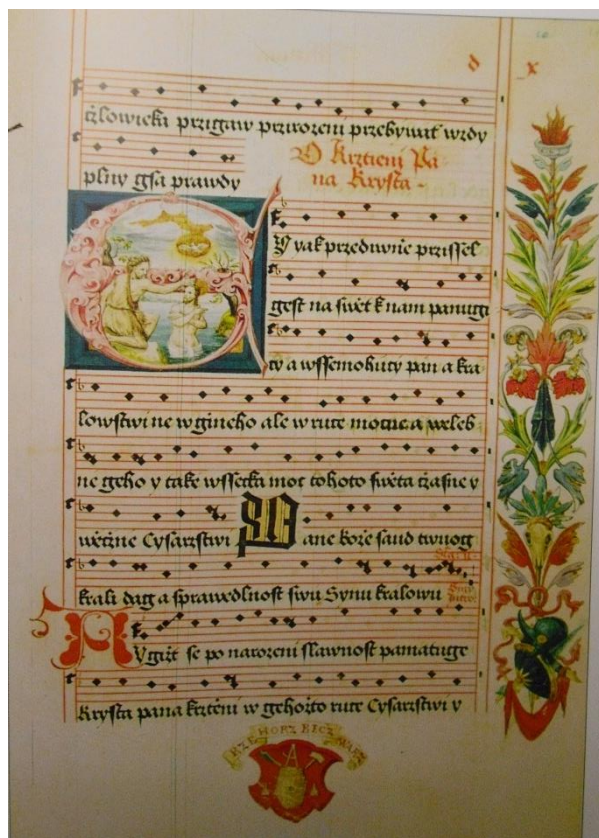 d x
człowieka przigaw przirozeni przebywat wzdy
plny gsa prawdy
O Krztieni Pa
na Krysta
Y yak przediwne prissel
gest na swět k nam panugi
cy a wssemohucy pan a kra
lowstwi ne w gineho ale w ruce mocne a weleb
ne geho y take wssecka moc tohoto swěta czasne y
wěczne Cysarstwi Pane boze saud twuog
krali dag a sprawedlnost swu Synu kralowu
A Y gizt se po narozeni slawnost pamatuge
Krysta pana krzteni w gehozto ruce Cysarstwi y